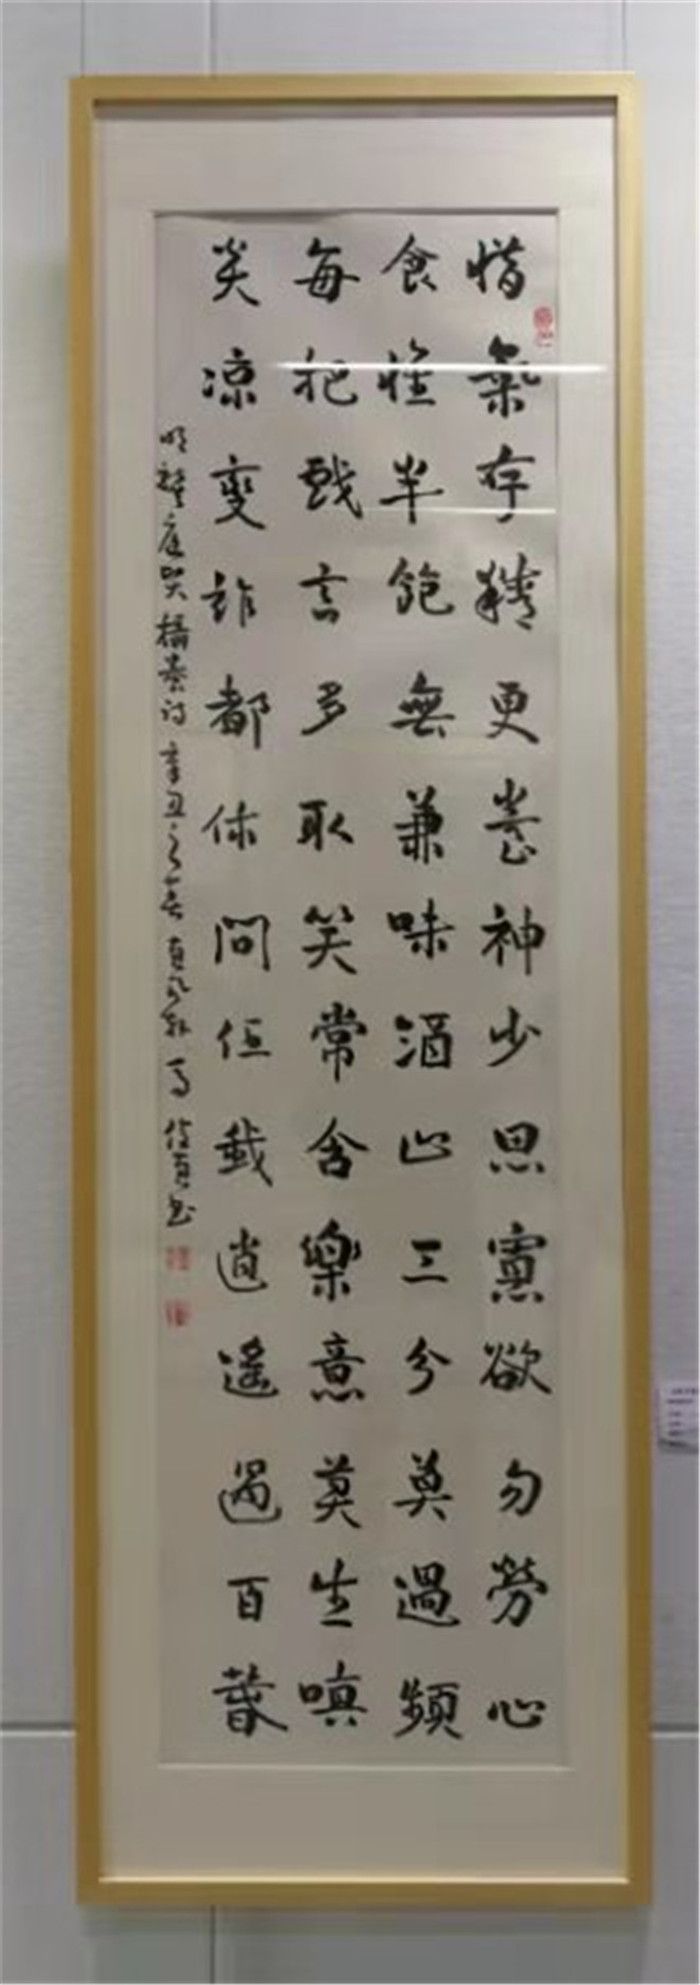 惜氣存精更養神少思寡欲勿勞心
食惟半飽無兼味酒止三分莫過頻
每把戲言多取笑常含樂意莫生嗔
炎凉變詐都休問任我逍遙過百春
明龔廷賢攝養詩辛丑之春